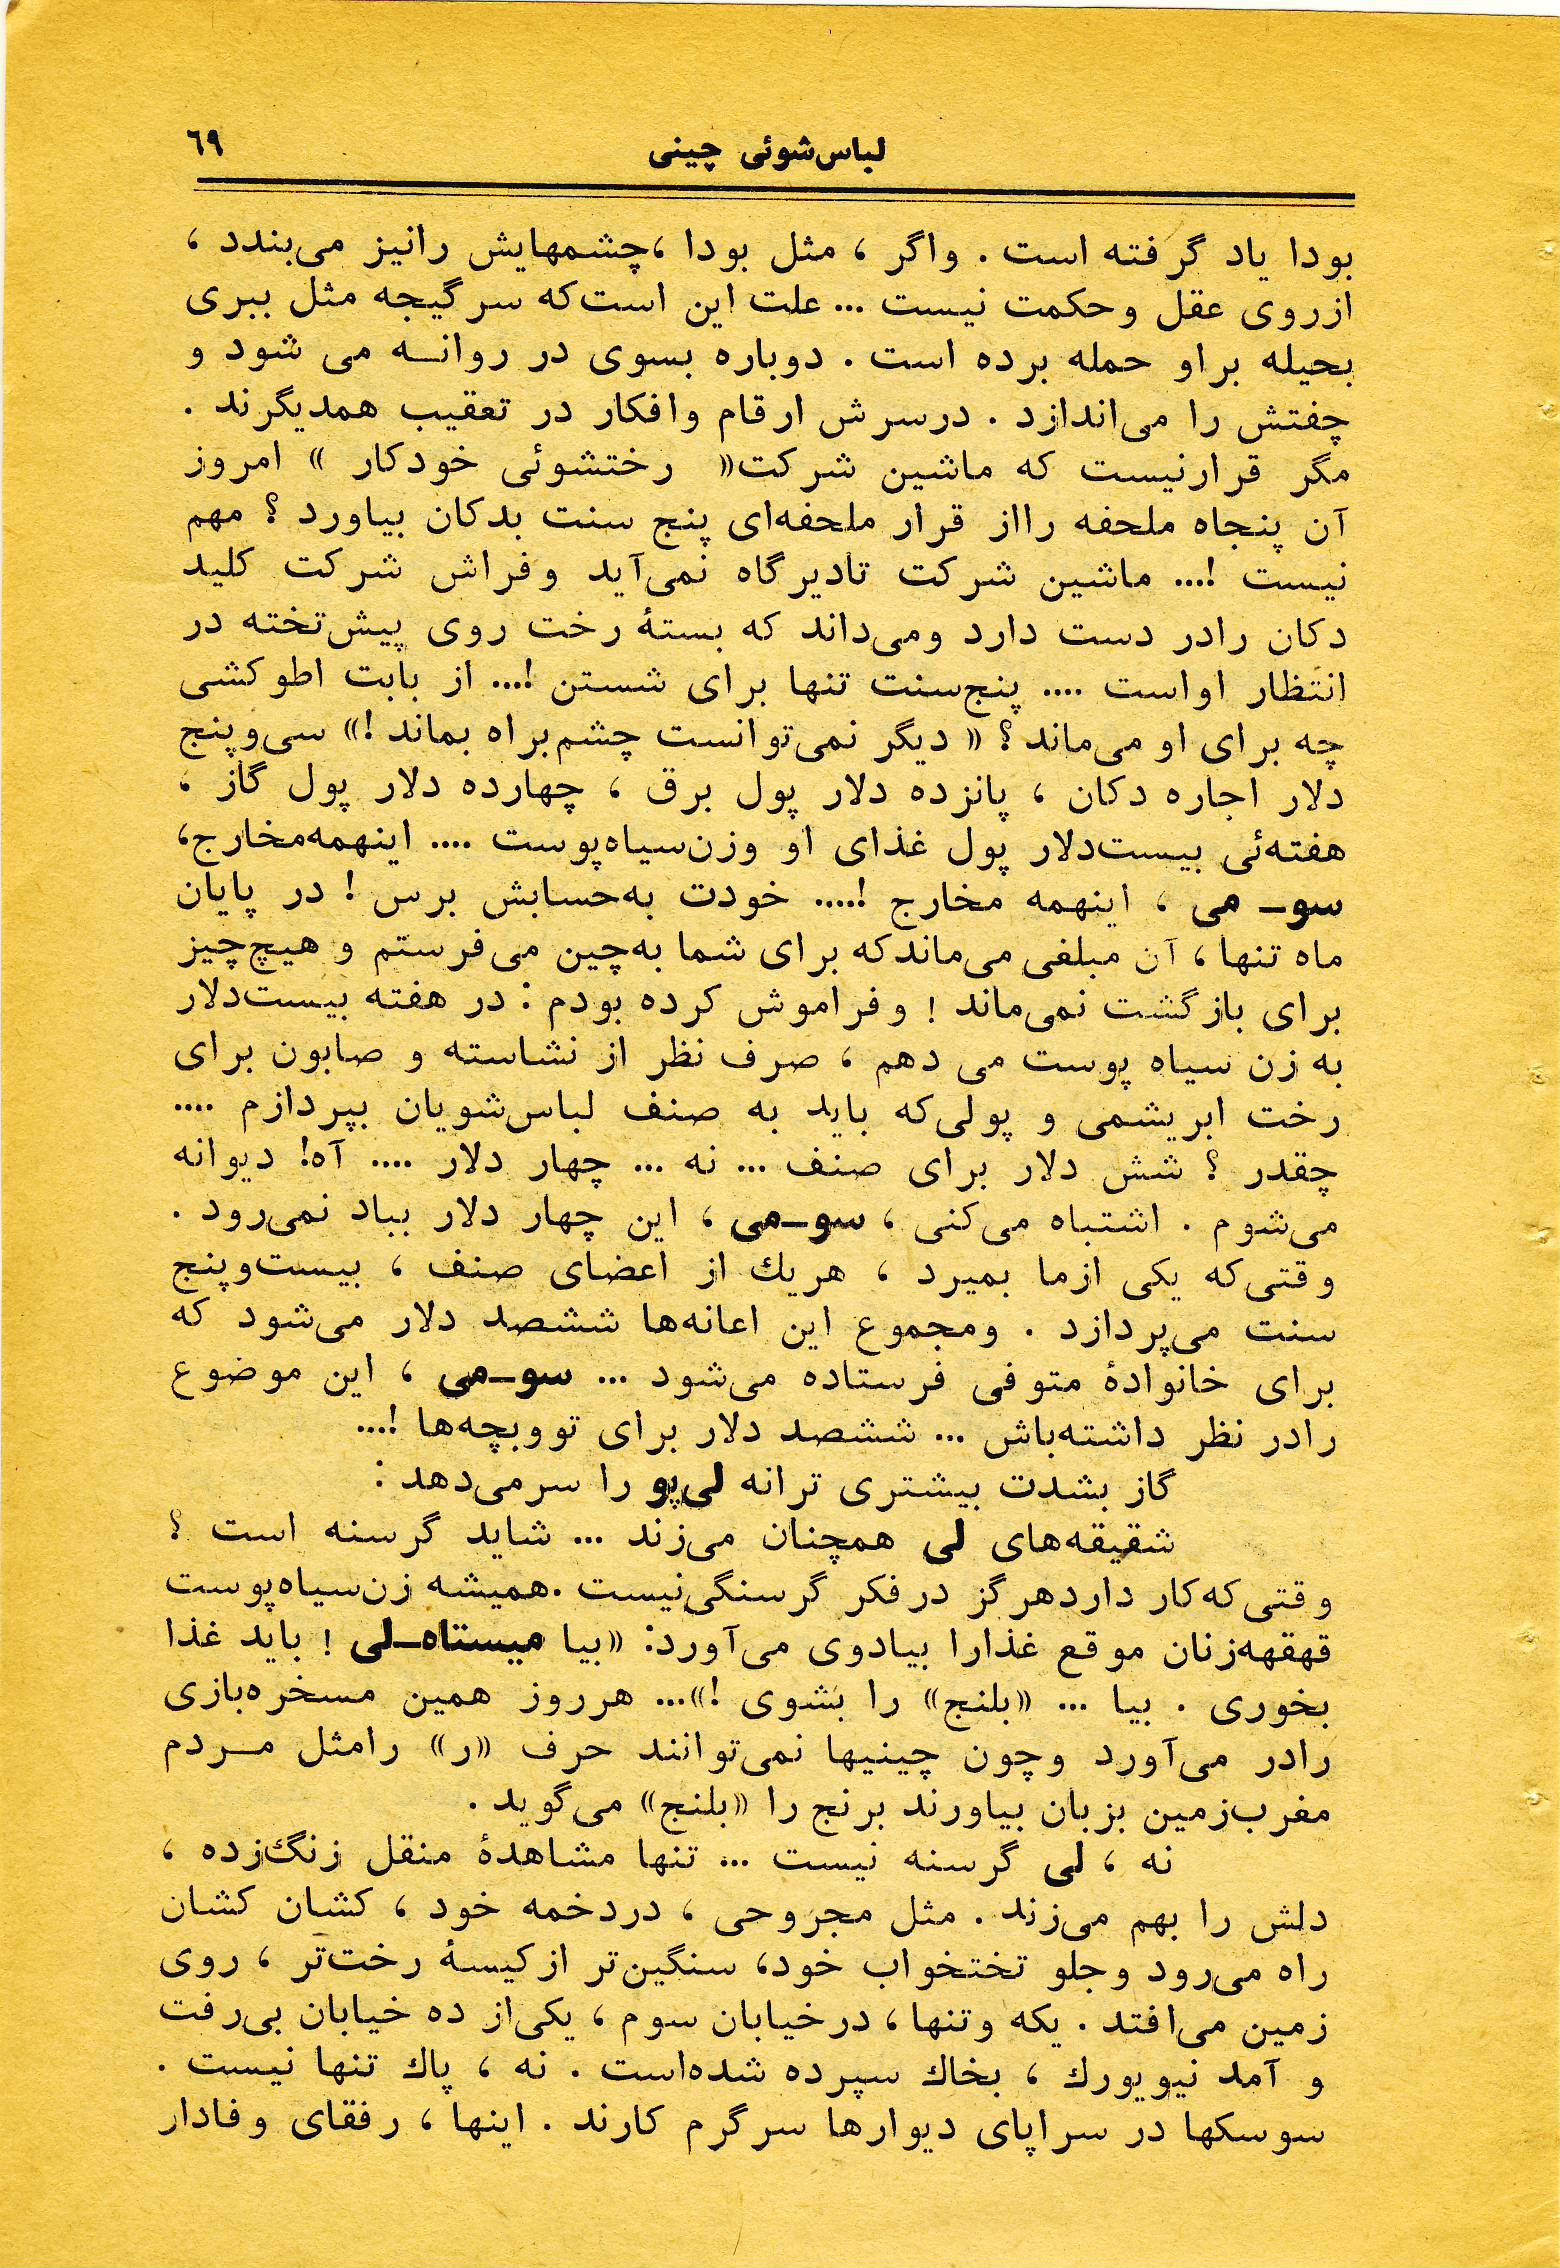 لباس‌شوئی چینی ٦٩
بودا یاد گرفته است . واگر ، مثل بودا ،چشمهایش رانیز می‌بندد ،
ازروی عقل وحکمت نیست ... علت این است‌که سرگیجه مثل ببری
بحیله براو حمله برده است . دوباره بسوی در روانـه می شود و
چفتش را می‌اندازد . درسرش ارقام وافکار در تعقیب همدیگرند .
مگر قرارنیست که ماشین شرکت« رختشوئی خودکار » امروز
آن پنجاه ملحفه رااز قرار ملحفه‌ای پنج سنت بدکان بیاورد ؟ مهم
نیست !... ماشین شرکت تادیرگاه نمی‌آید وفراش شرکت کلید
دکان رادر دست دارد ومی‌داند که بستهٔ رخت روی پیش‌تخته در
انتظار اواست .... پنج‌سنت تنها برای شستن !... از بابت اطوکشی
چه برای او می‌ماند ؟ « دیگر نمی‌توانست چشم‌براه بماند !» سی‌وپنج
دلار اجاره دکان ، پانزده دلار پول برق ، چهارده دلار پول گاز ،
هفته‌ئی بیست‌دلار پول غذای او وزن‌سیاه‌پوست .... اینهمه‌مخارج،
سوـ می ، اینهمه مخارج !.... خودت به‌حسابش برس ! در پایان
ماه تنها ، آن مبلغی می‌ماندکه برای شما به‌چین می‌فرستم و هیچ‌چیز
برای بازگشت نمی‌ماند ! وفراموش کرده بودم : در هفته بیست‌دلار
به زن سیاه پوست می دهم ، صرف نظر از نشاسته و صابون برای
رخت ابریشمی و پولی‌که باید به صنف لباس‌شویان بپردازم ....
چقدر ؟ شش دلار برای صنف ... نه ... چهار دلار .... آه! دیوانه
می‌شوم . اشتباه می‌کنی ، سوـمی ، این چهار دلار بباد نمی‌رود .
وقتی‌که یکی ازما بمیرد ، هریك از اعضای صنف ، بیست‌وپنج
سنت می‌پردازد . ومجموع این اعانه‌ها ششصد دلار می‌شود که
برای خانوادهٔ متوفی فرستاده می‌شود ... سوـمی ، این موضوع
رادر نظر داشته‌باش ... ششصد دلار برای تووبچه‌ها !...
گاز بشدت بیشتری ترانه لی‌پو را سرمی‌دهد :
شقیقه‌های لی همچنان می‌زند ... شاید گرسنه است ؟
وقتی‌که‌کار داردهرگز درفکر گرسنگی‌نیست .همیشه زن‌سیاه‌پوست
قهقهه‌زنان موقع غذارا بیادوی می‌آورد: «بیا میستاه‌ـلی ! باید غذا
بخوری . بیا ... «بلنج» را بشوی !»... هرروز همین مسخره‌بازی
رادر می‌آورد وچون چینیها نمی‌توانند حرف «ر» رامثل مـردم
مغرب‌زمین بزبان بیاورند برنج را «بلنج» می‌گوید .
نه ، لی گرسنه نیست ... تنها مشاهدهٔ منقل زنگ‌زده ،
دلش را بهم می‌زند . مثل مجروحی ، دردخمه خود ، کشان کشان
راه می‌رود وجلو تختخواب خود، سنگین‌تر ازکیسهٔ رخت‌تر ، روی
زمین می‌افتد . یکه وتنها ، درخیابان سوم ، یکی‌از ده خیابان بی‌رفت
و آمد نیویورك ، بخاك سپرده شده‌است . نه ، پاك تنها نیست .
سوسکها در سراپای دیوارها سرگرم کارند . اینها ، رفقای وفادار